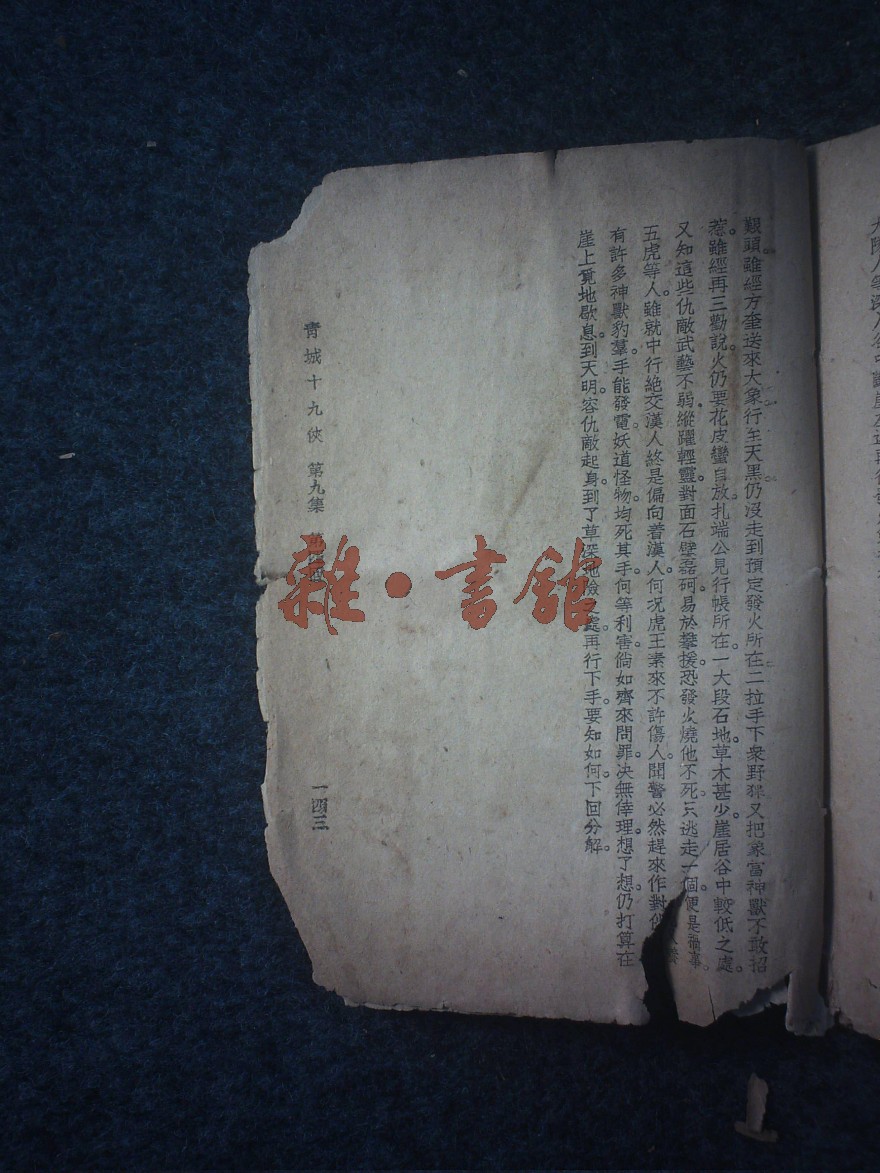 艱頭雖經方奎送來大象行至天黑仍沒走到預定發火所在二拉手下衆野猓又把象當神獸不敢招
惹。雖經再三勸說火仍要花皮蠻自放。扎端公見行帳所在一大段石地。草木甚少。崖居谷中較低之處。
又知這些仇敵武藝不弱。縱躍輕靈。對面石壁磊砢。易於攀援。恐發火燒他不死。只逃走一個。便是禍事。
五虎等人。雖就中行絶交漢人。終是偏向着漢人。何况虎王素來不許傷人。聞警必然趕來作對。
有許多神獸豹羣。手能發電。妖道怪物。均死其手。何等利害。倘如齊來問罪。决無倖理。想了想。仍打算在
崖上覓地歇息。到天明。容仇敵起身。到了草深地險之處。再行下手。要知如何。下回分解。
青城十九俠 第九集
一四三
雜·書館